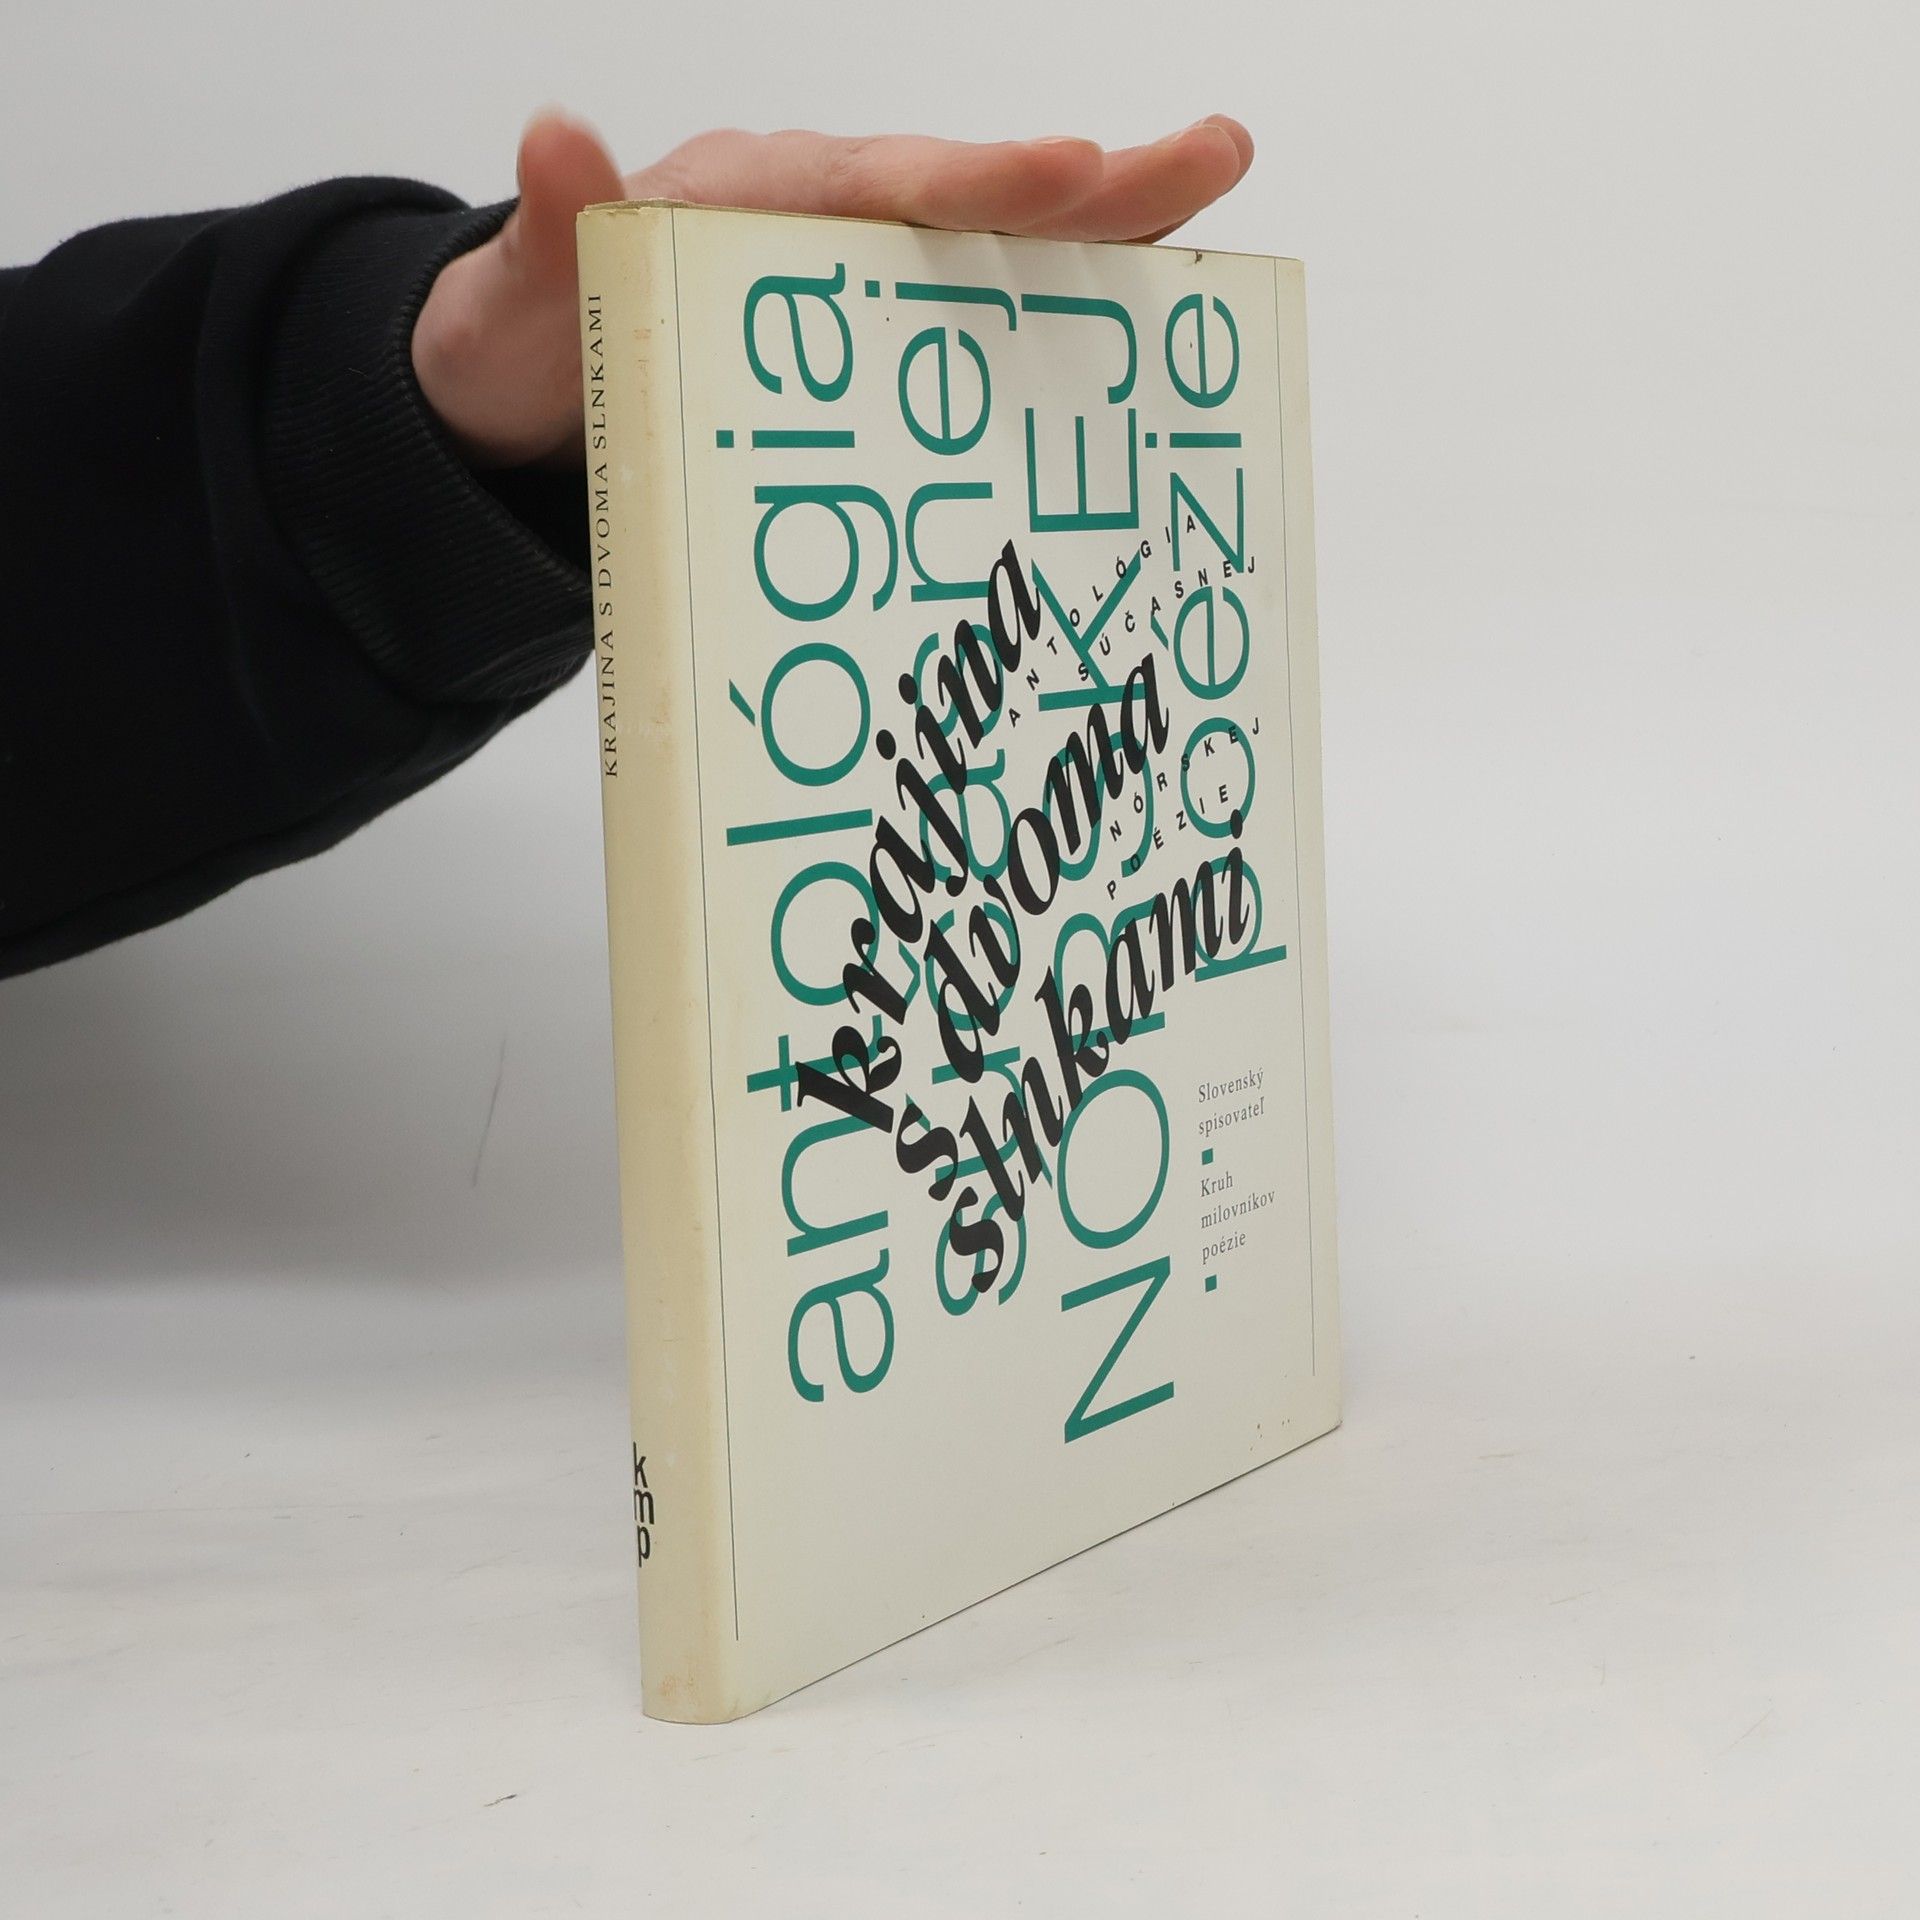 KRAJINA S DVOMA SLNKAMI
k
m
p
antológia
súčasnej
NÓRSKEJ
poézie
krajina
s dvoma
slnkami
ANTOLÓGIA
SÚČASNEJ
NÓRSKEJ
POÉZIE
Slovenský
spisovateľ
Kruh
milovníkov
poézie